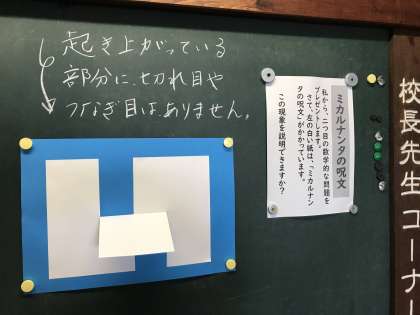 起き上がっている
部分に、切れ目や
つなぎ目はありません。
ミカルナンタの呪文
私から、二つ目の数学的な問題を
プレゼントします。
さて、左の白い紙は、「ミカルナン
タの呪文」がかかっています。
この現象を説明できますか？
校長先生コーナー